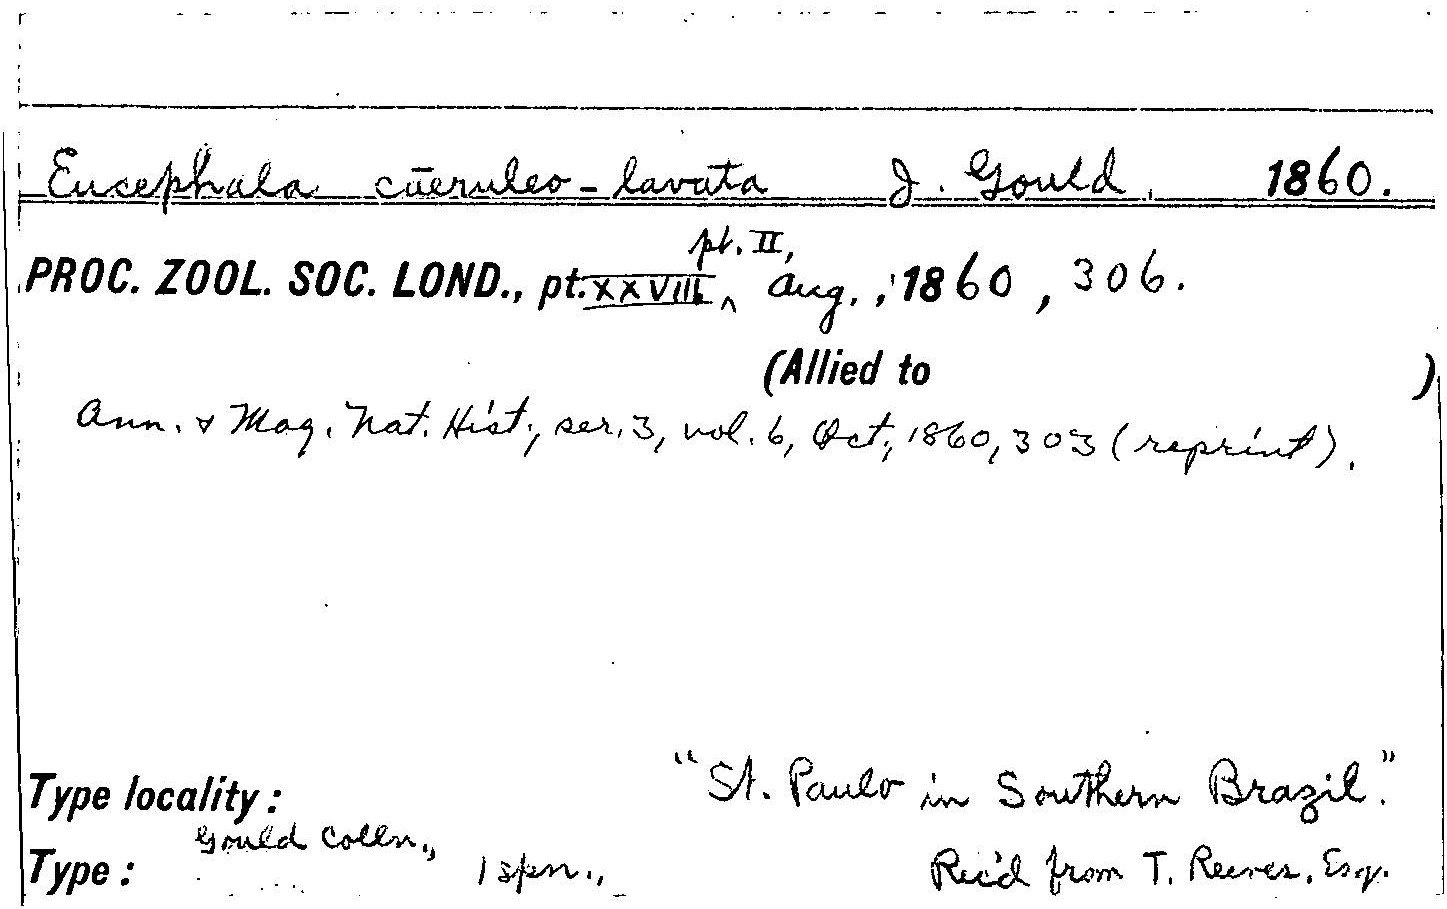 Eucephala cæruleo-lavata J. Gould, 1860.
pt. II,
PROC. ZOOL. SOC. LOND., pt. XXVIII ^ Aug., 1860, 306.
(Allied to )
Ann. & Mag. Nat. Hist., ser. 3, vol. 6, Oct., 1860, 303 (reprint).
Type locality: "St. Paulo in Southern Brazil."
Type: Gould Colln., 1 spn., Rec'd from T. Reeves, Esq.